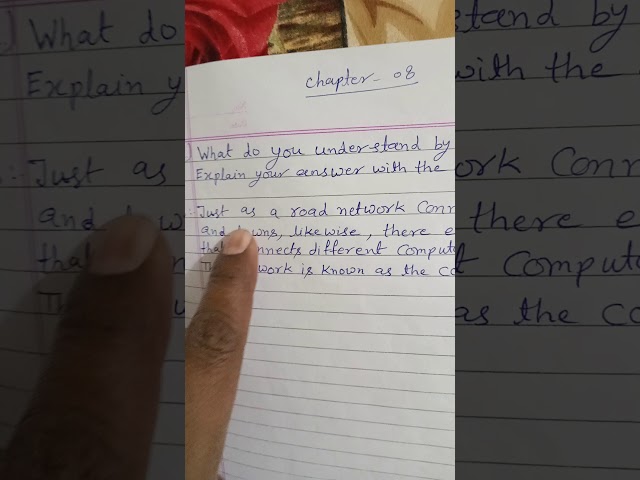 Chapter - 08
What do you understand by
Explain your answer with the
Just as a road network Conn
and towns, likewise, there e
that connects different Comput
network is known as the co